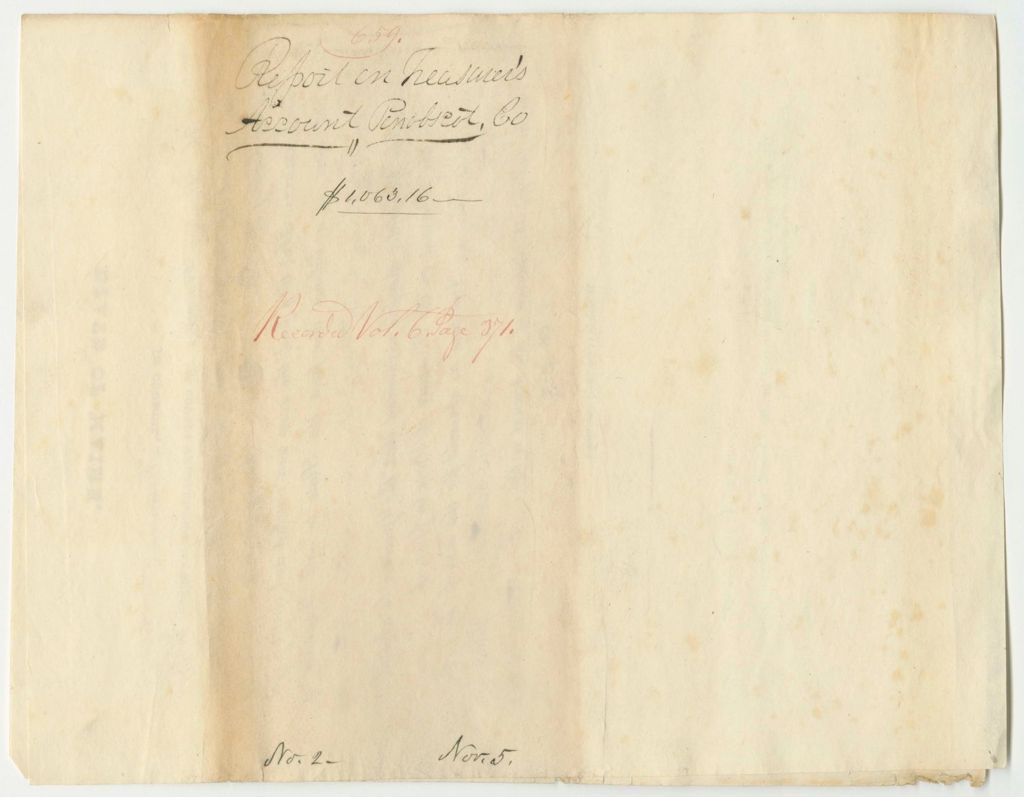 659.
Report on Treasurer's
Account Penobscot, Co
$1,063.16
Recorded Vol. 6 Page
No. 2 Nov. 5.
STATE OF MAINE.